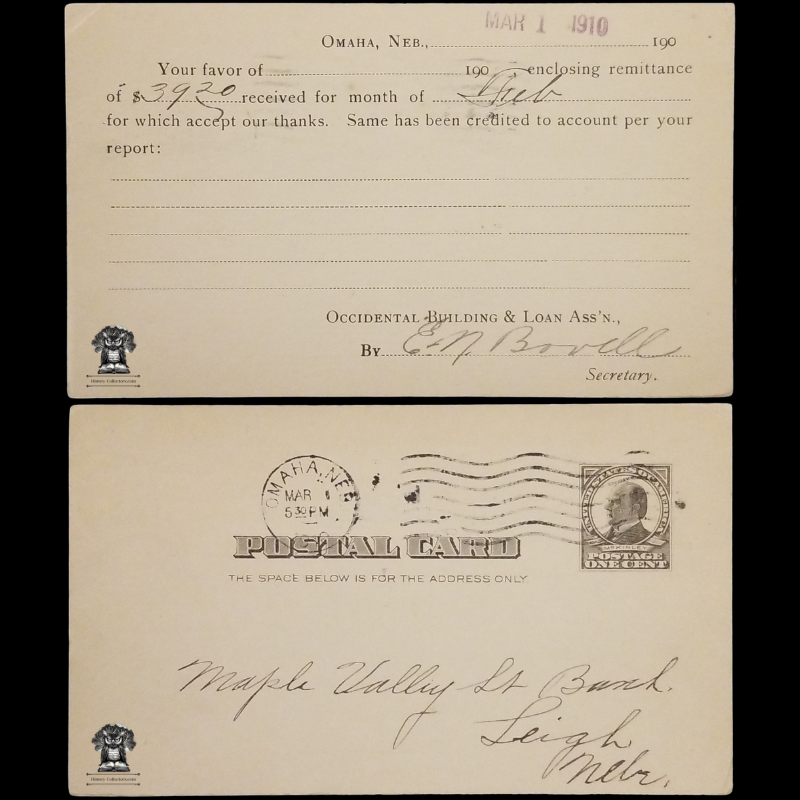 MAR 1 1910
OMAHA, NEB., 190
Your favor of 190 enclosing remittance
of $39 20 received for month of Feb
for which accept our thanks. Same has been credited to account per your
report:
OCCIDENTAL BUILDING & LOAN ASS'N.,
BY E. N. Bovell
Secretary.
History-Collectors.com
OMAHA, NEB
MAR 1
5 30 PM
UNITED STATES OF AMERICA
MCKINLEY
POSTAGE
ONE CENT
POSTAL CARD
THE SPACE BELOW IS FOR THE ADDRESS ONLY.
Maple Valley St Bank.
Leigh
Nebr.